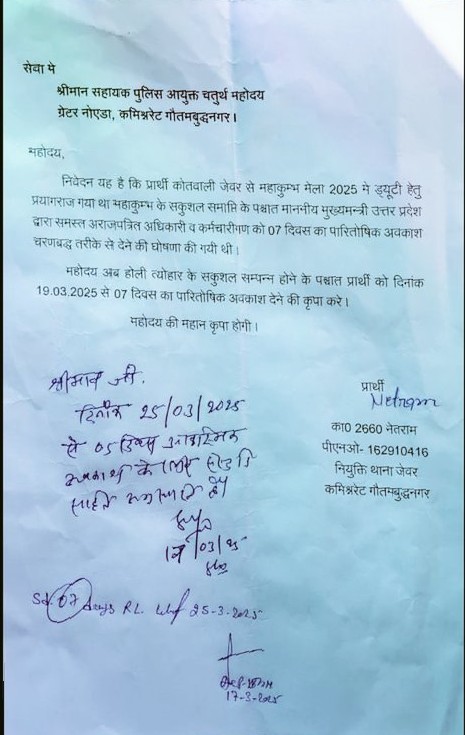 सेवा मे
श्रीमान सहायक पुलिस आयुक्त चतुर्थ महोदय
ग्रेटर नोएडा, कमिश्नरेट गौतमबुद्धनगर।
महोदय,
निवेदन यह है कि प्रार्थी कोतवाली जेवर से महाकुम्भ मेला 2025 मे ड्यूटी हेतु
प्रयागराज गया था महाकुम्भ के सकुशल समाप्ति के पश्चात माननीय मुख्यमन्त्री उत्तर प्रदेश
द्वारा समस्त अराजपत्रित अधिकारी व कर्मचारीगण को 07 दिवस का पारितोषिक अवकाश
चरणबद्ध तरीके से देने की घोषणा की गयी थी।
महोदय अब होली त्योहार के सकुशल सम्पन्न होने के पश्चात प्रार्थी को दिनांक
19.03.2025 से 07 दिवस का पारितोषिक अवकाश देने की कृपा करे।
महोदय की महान कृपा होगी।
प्रार्थी
Netram
का0 2660 नेतराम
पीएनओ- 162910416
नियुक्ति थाना जेवर
कमिश्नरेट गौतमबुद्धनगर
श्रीमान जी,
दिनाँक 25/03/2025
से 05 दिवस आकस्मिक
अवकाश के लिए
सहित
/03/25
07 days RL wef 25-3-2025
17-3-2025